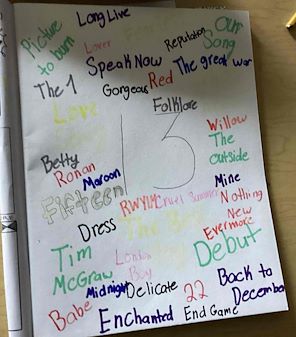 Long Live
Picture
to burn
Lover
Reputation
Our
Song
Speak Now
The great war
The 1
Gorgeous
Red
Folklore
Love
Story
13
Willow
The
outside
Betty
Ronan
Maroon
Mine
Fifteen
RWYLM
Cruel Summer
Nothing
New
Dress
The Best
Day
Evermore
Debut
Tim
McGraw
London
Boy
Midnight
Delicate
22
Back to
December
Babe
Enchanted
End Game